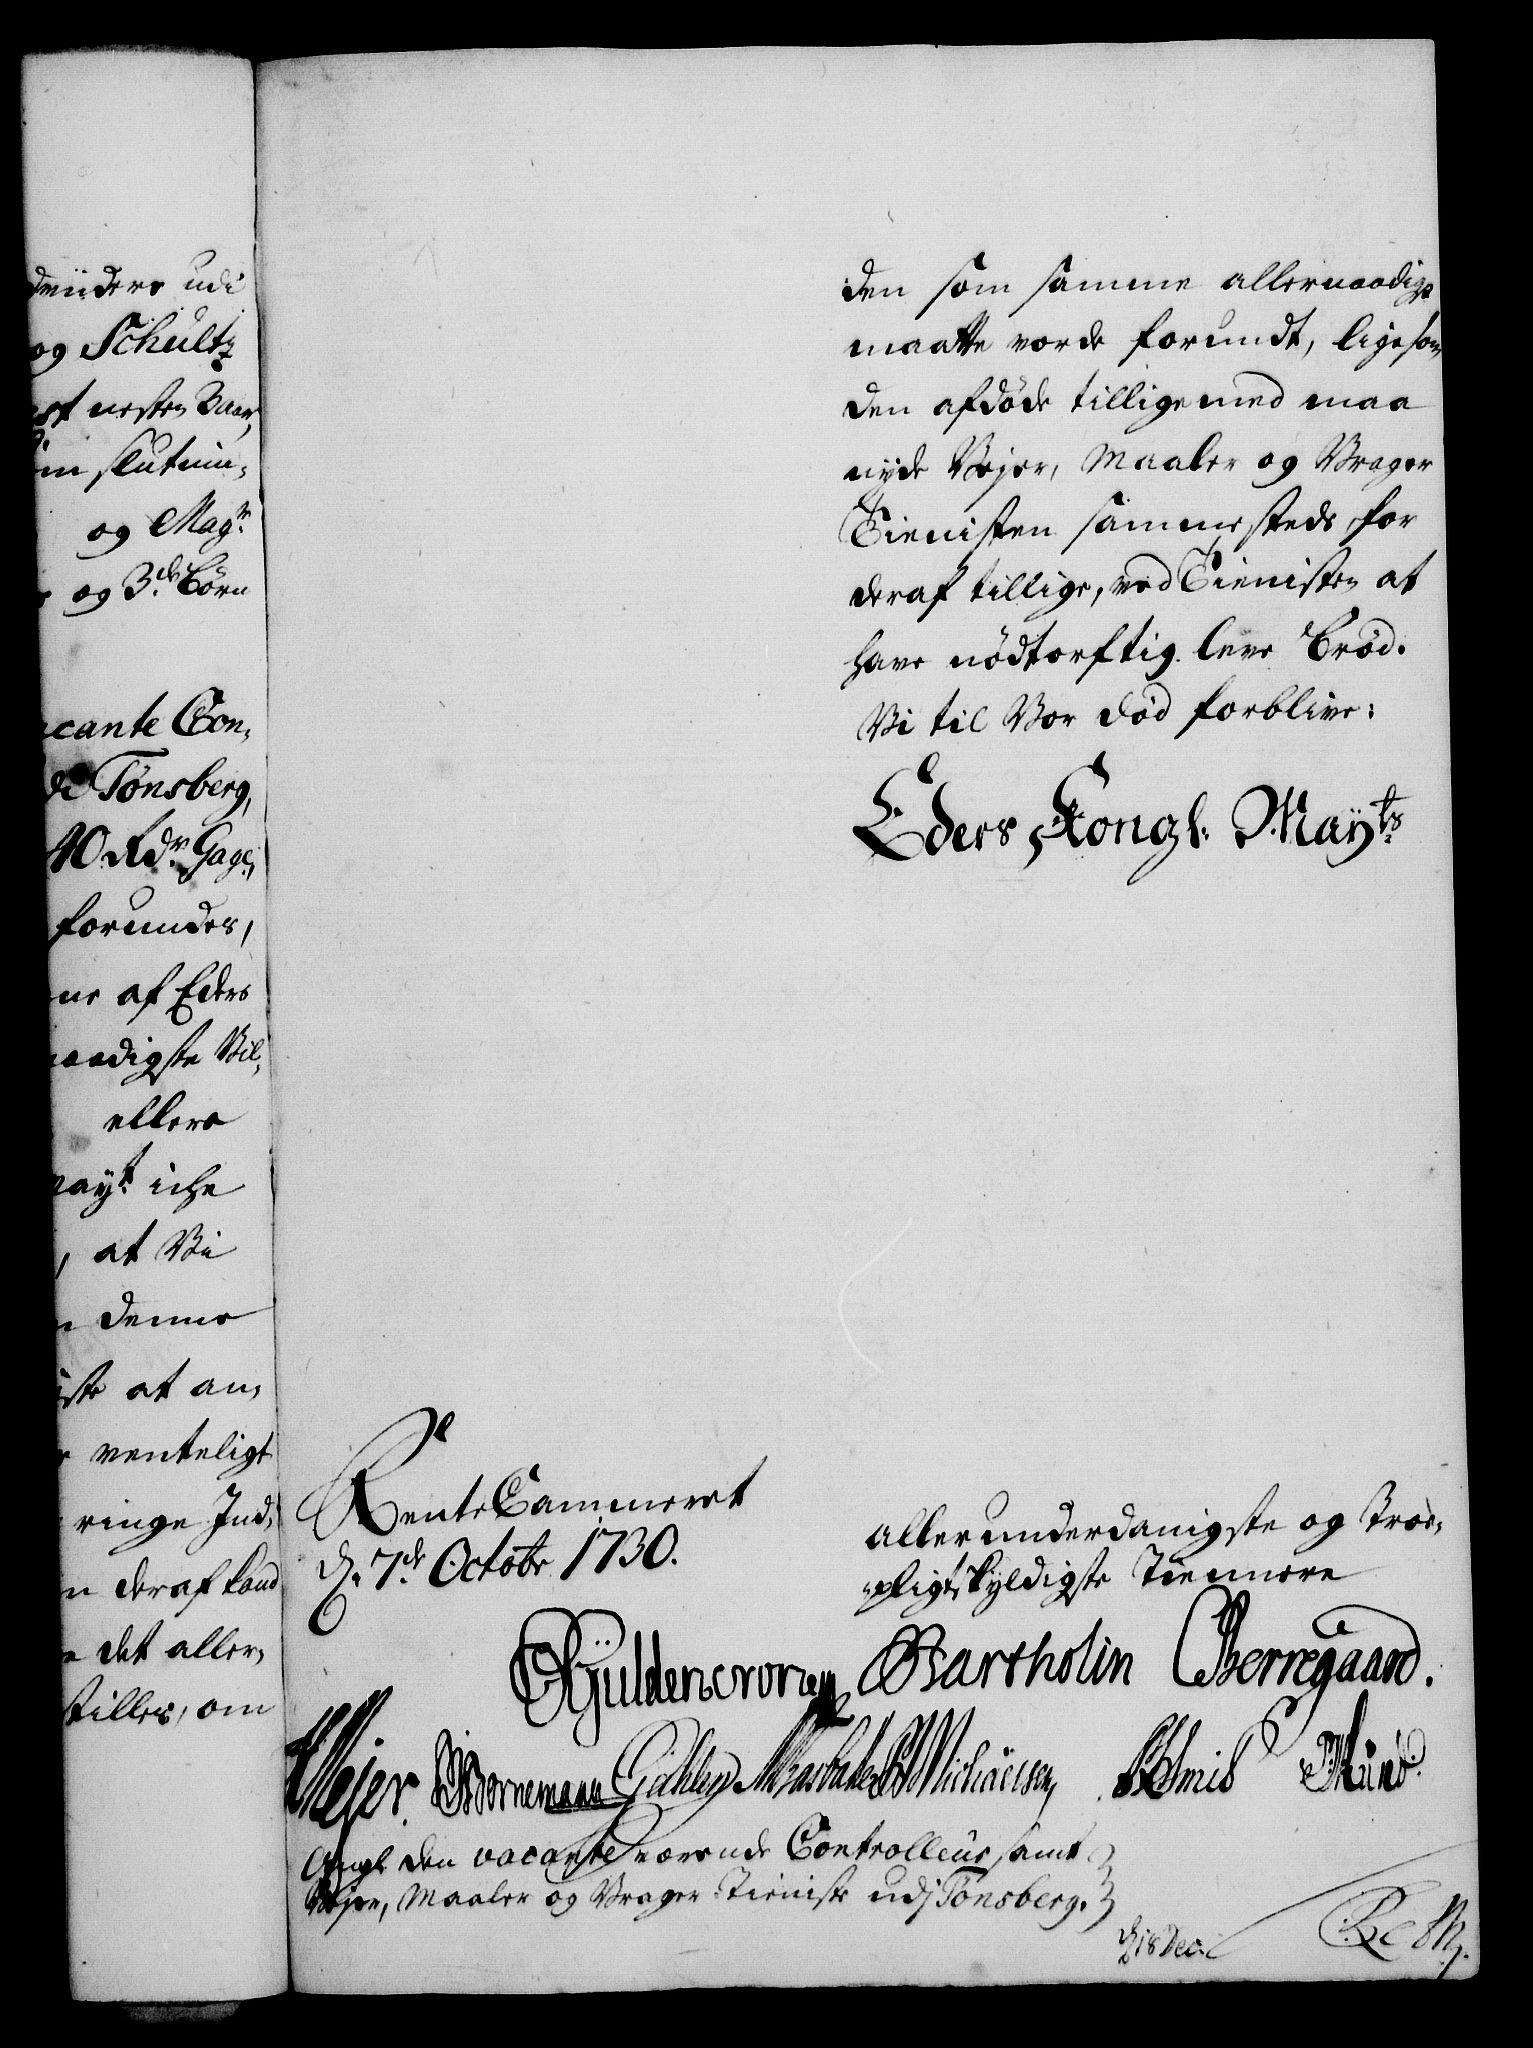 udi
og Schultz
nesten 3 aar,
slutnin,
og Magr.
og 3de. Börn
Con,
Tönsberg,
40 Rdr. Gage,
forundes,
af Eders
Vil,
ellers
iche
, at Vi
denne
at an,
venteligt
ringe Ind,
deraf kand
det aller,
stilles, om
den som samme allernaadigst
maatte vorde forundt, ligesom
den afdöde tilligemed maa
nyde Vejer, Maaler og Vrager
Tienisten sammesteds, for
deraf tillige, ved Tienisten at
have nödtorftig leve Bröd.
Vi til Vor död forblive:
Eders Kongl: Mayts.
RenteCammeret
d. 7de. Octobr. 1730.
allerunderdanigste og Troe,
pligtskyldigste Tiennere
Gÿldencrone Bartholin Berregaard.
Mejer. Bornemann Michaelsen
Angl: den vacante værende Controlleur samt
Vejer, Maaler og Vrager Tieniste udj Tönsberg.
d. 18 Dec: